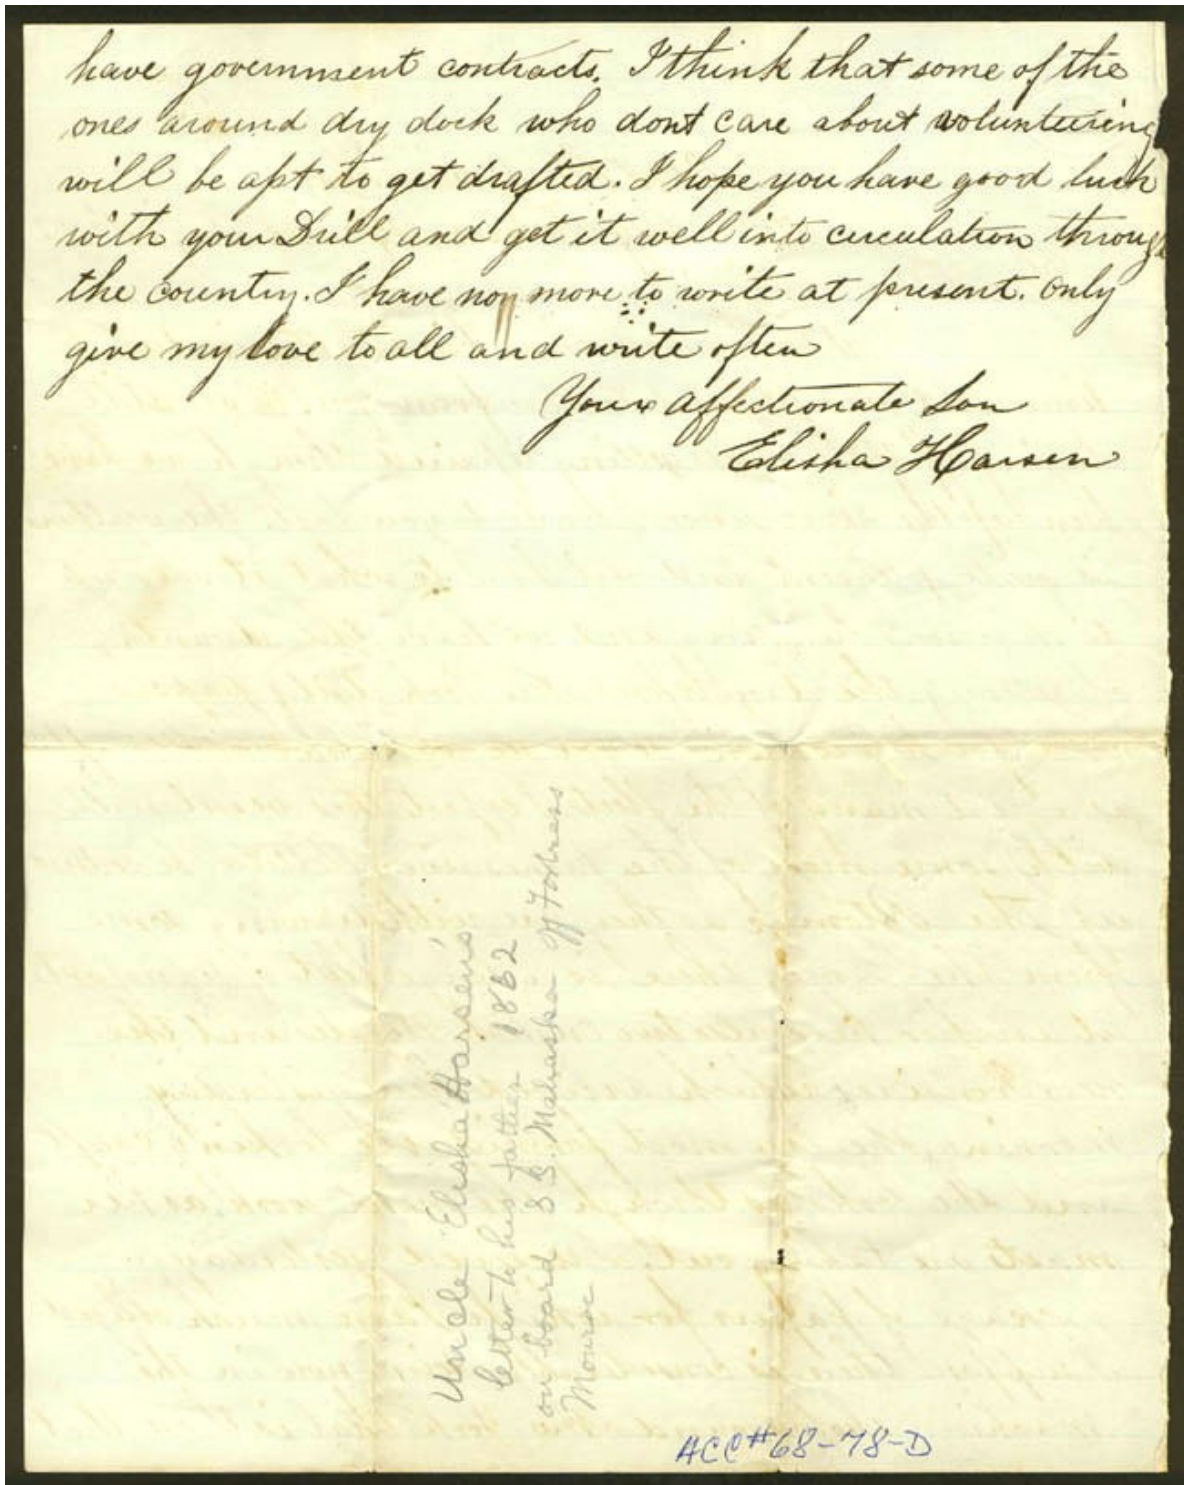 have government contracts. I think that some of the
ones around dry dock who dont care about volunteering
will be apt to get drafted. I hope you have good luck
with your Drill and get it well into circulation through
the country. I have non more to write at present. only
give my love to all and write often
Your affectionate Son
Elisha Harsen
Uncle Elisha Harsen's
letter to his father 1862
on board S.S. Mahaska off Fortress
Monroe
ACC# 68-78-D